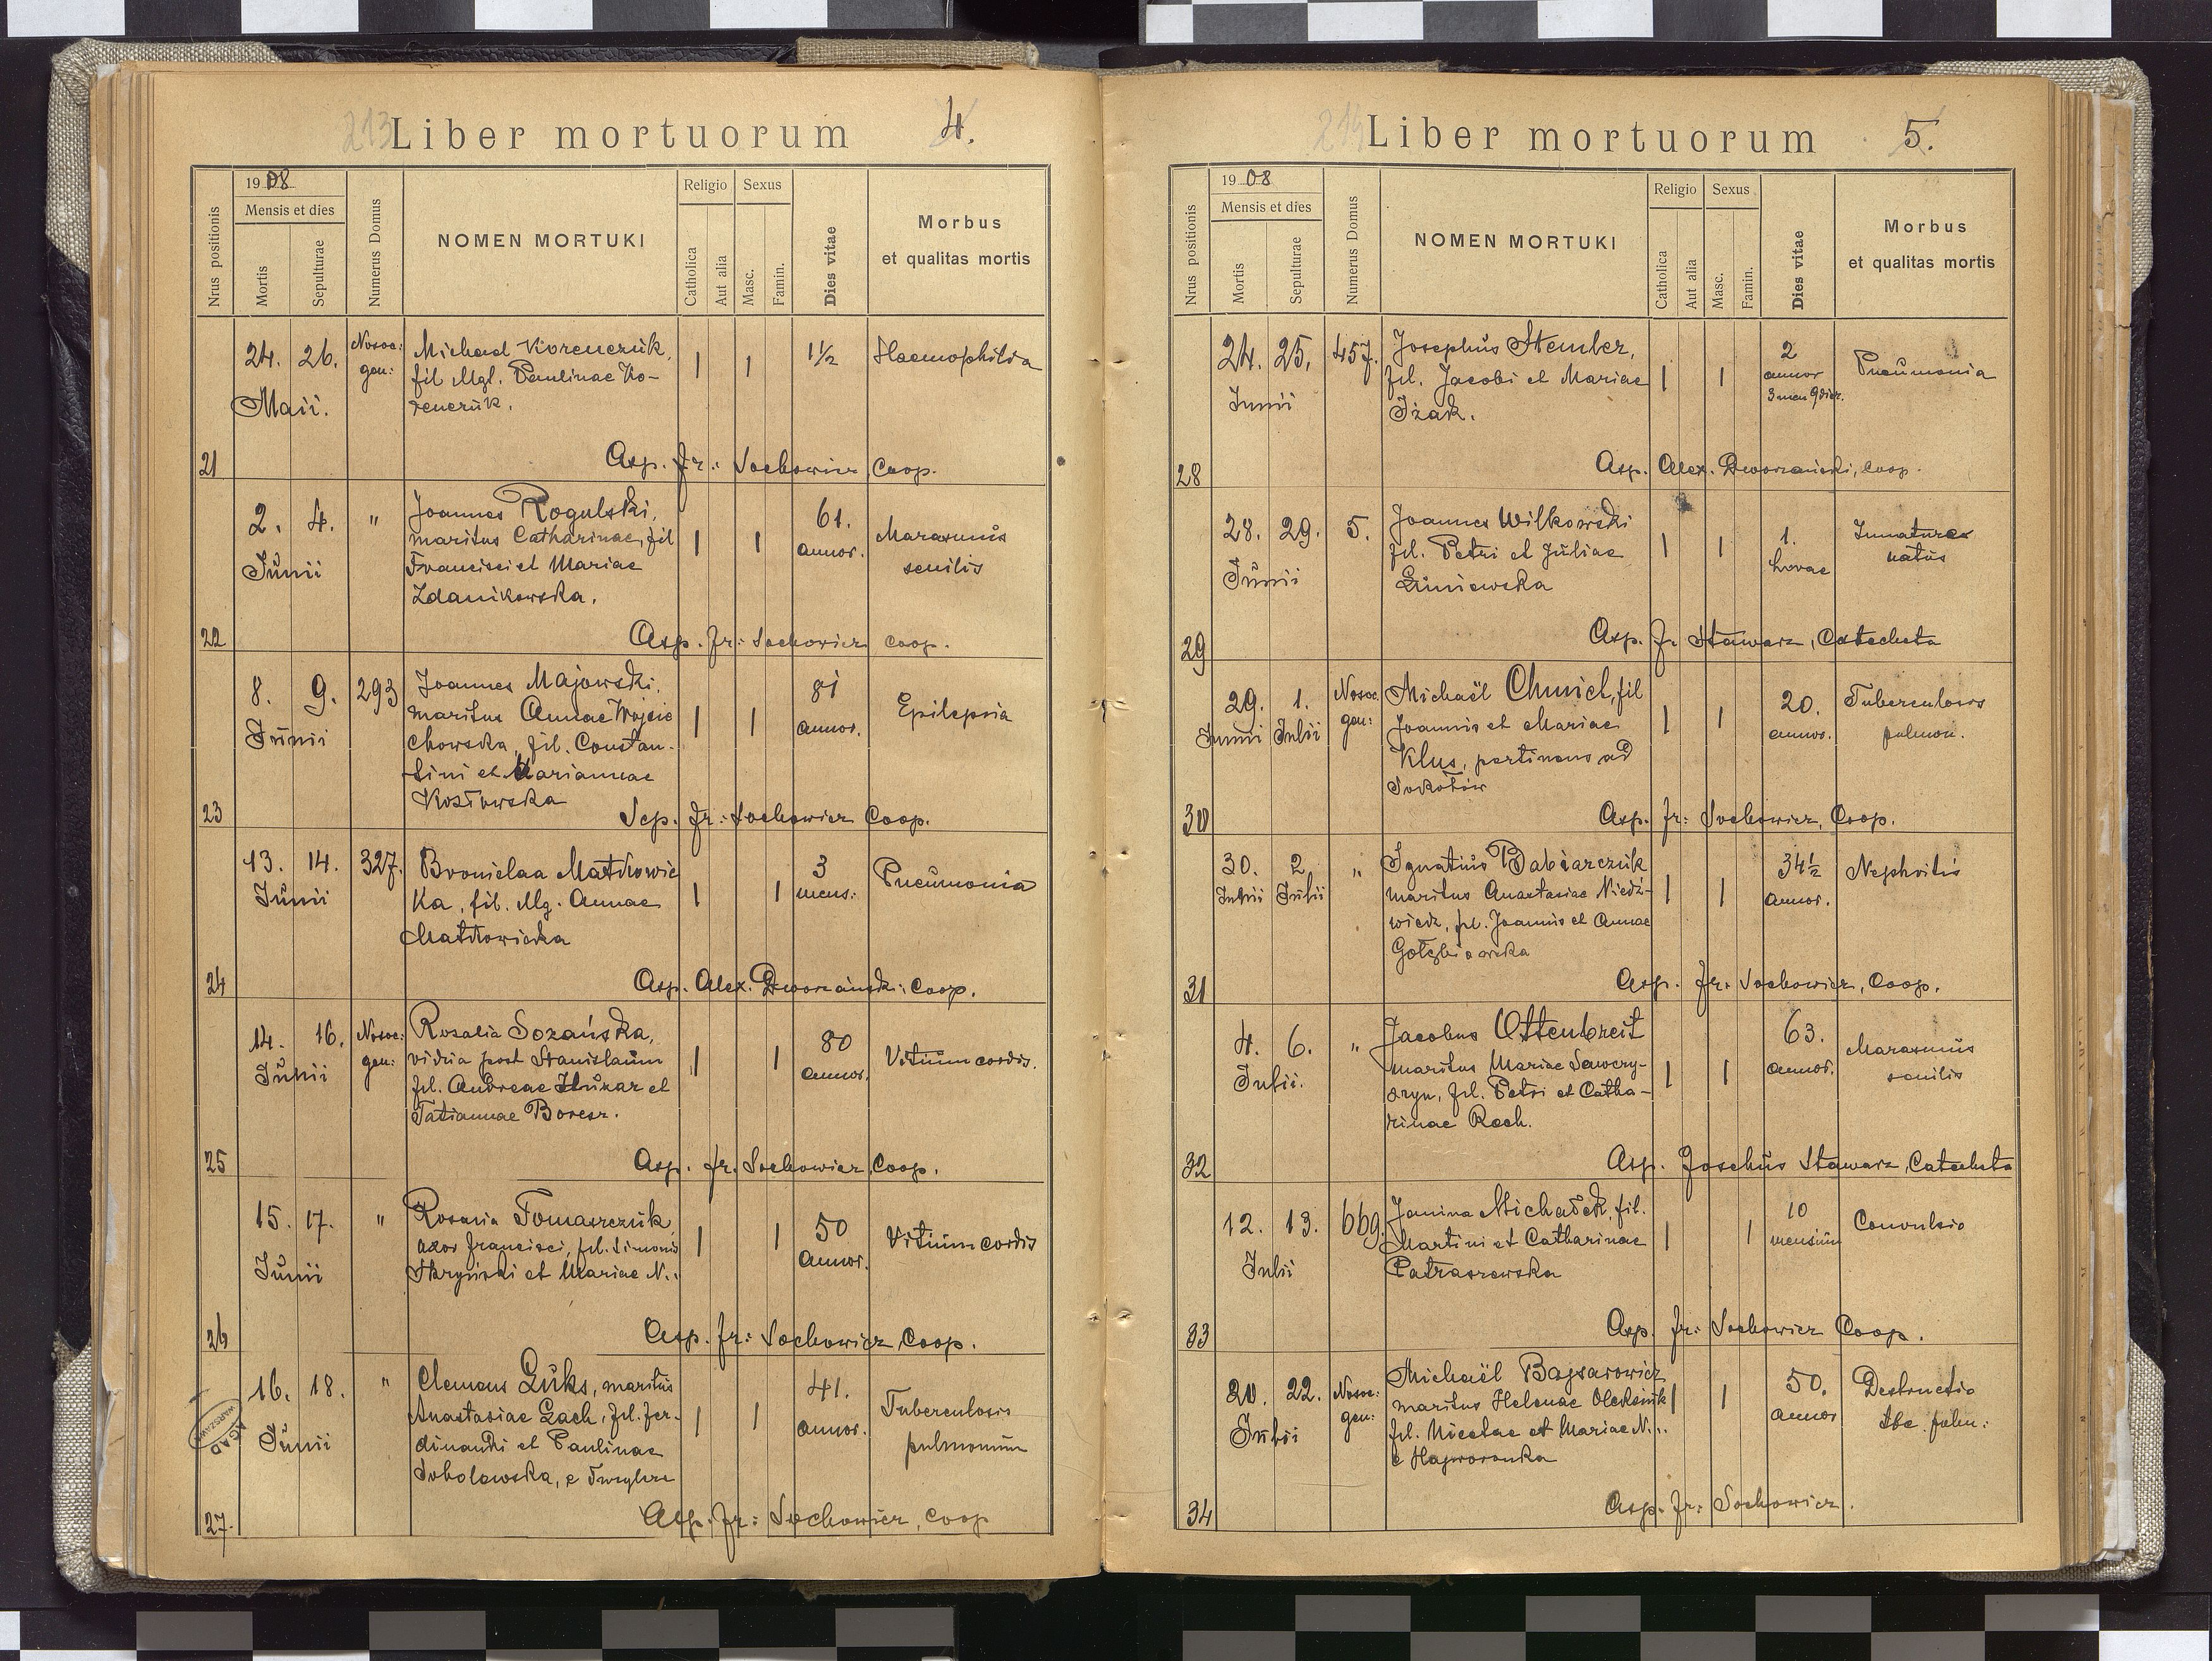 213 Liber mortuorum 4.
Nrus positionis
1908
Mensis et dies
Mortis
Sepulturae
Numerus Domus
NOMEN MORTUKI
Religio
Catholica
Aut alia
Sexus
Masc.
Famin.
Dies vitae
Morbus
et qualitas mortis
24. 26. Nosoc: Michael Korenczuk, 1 1 1½ Haemophilia
gen: fil Mgl. Paulinae Ko-
Maii. renczuk.
21 Asp. Fr.: Sochowicz Coop.
2. 4. " Joannes Rogulski, 1 1 61. Marasmus
maritus Catharinae, fil annor. senilis
Junii Francisci et Mariae
Zdanikowska.
22 Asp. Fr: Sochowicz coop.
8. 9. 293 Joannes Majowski, 1 1 81 Epilepsia
maritus Annae Wojcie annor.
Junii chowska, fil. Constan-
tini et Mariannae
Kozłowska
23 Sep. Fr: Sochowicz Coop.
13. 14. 327. Bronislaa Matkowic 1 1 3 Pneumonia
Junii ka, fil. Mg. Annae mens:
Matkowicka
24 Asp. Alex. Dworzański: Coop.
14. 16. Nosoc: Rosalia Sozańska, 1 1 80 Vitium cordis.
Junii gen: vidua post Stanislaum annor.
fil. Andreae Hukar et
Tatiannae Boresz.
25 Asp. fr. Sochowicz, Coop.
15. 17. " Rosaria Tomaszczuk 1 1 50 Vitium cordis
uxor Francisci, fil. Simonis Annor.
Junii Skrypiński et Mariae N..
26 Asp. fr: Sochowicz, Coop.
16. 18. " Clemens Luks, maritus 1 1 41. Tuberculosis
Anastasiae Lach, fil. Fer- annor. pulmonum
Junii dinandi et Paulinae
Sobolewska, e
27. Asp. Fr: Sochowicz, coop
AGAD
WARSZAWA
214 Liber mortuorum 5.
Nrus positionis
1908
Mensis et dies
Mortis
Sepulturae
Numerus Domus
NOMEN MORTUKI
Religio
Catholica
Aut alia
Sexus
Masc.
Famin.
Dies vitae
Morbus
et qualitas mortis
24. 25. 457. Josephus Stember, 1 1 2 Pneumonia
fil. Jacobi et Mariae annor
Junii Iżak. 3 men 9 dier.
28 Asp. Alex. Dworzański, coop.
28. 29. 5. Joannes Wilkowski 1 1 1. Immaturae
fil. Petri et Juliae horae natus
Junii Liniewska
29 Asp. Fr Stawarz, Catecheta
29. 1. Nosoc. Michaël Chmiel, fil 1 1 20. Tuberculosis
Junii Julii gen: Joannis et Mariae annor. pulmon.
Klus, pertinens ad
Sokołów
30 Asp. Fr: Sochowicz, Coop.
30. 2 " Ignatius Babiarczuk 1 1 34½ Nephritis
Junii Julii maritus Anastasiae Niedź- annor.
wiedz, fil. Joannis et Annae
Gołębiowska
31 Asp. Fr: Sochowicz, Coop.
4. 6. " Jacobus Ottenbreit 1 1 63. Marasmus
maritus Mariae Sewery- annor. senilis
Julii. szyn, fil. Petri et Catha-
rinae Roch.
32 Asp. Josephus Stawarz, Catecheta
12. 13. 669. Janina Michałek, fil. 1 1 10 Convulsio
Martini et Catharinae mensium
Julii Patraszewska
33 Asp. Fr: Sochowicz Coop.
20. 22. Nosoc: Michaël Bajsarowicz 1 1 50. Destructio
gen: maritus Helenae Oleksiuk annor tbc. pulm:
Julii fil. Nicolae et Mariae N..
e Hajworonka
34 Asp. Fr: Sochowicz.